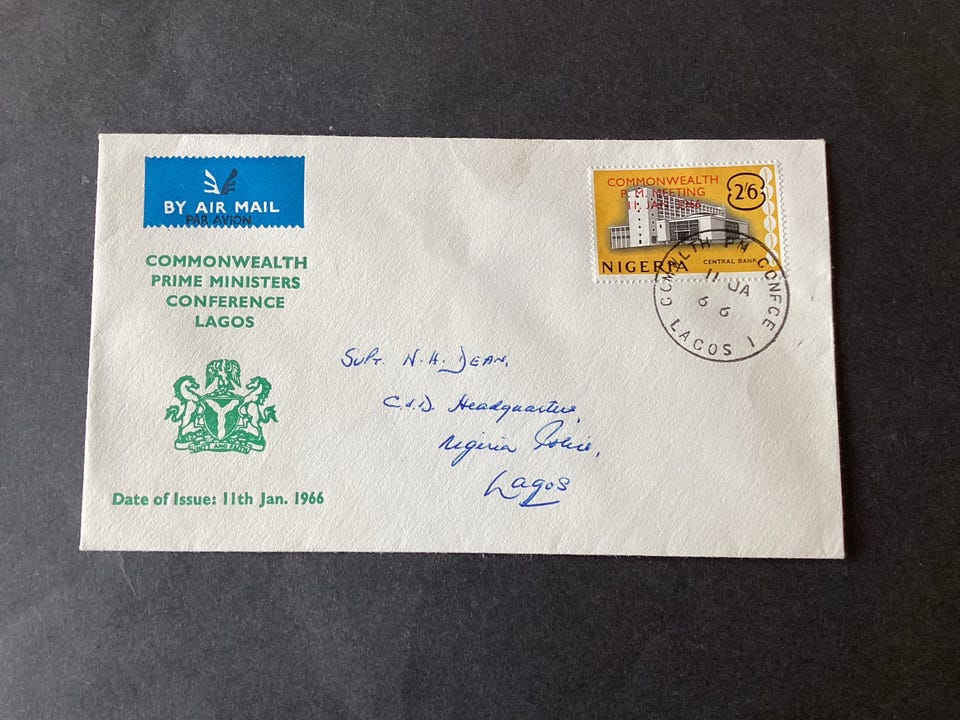 BY AIR MAIL
PAR AVION
COMMONWEALTH
PRIME MINISTERS
CONFERENCE
LAGOS
UNITY AND FAITH
Date of Issue: 11th Jan. 1966
COMMONWEALTH
P. M. MEETING
11. JAN. 1966
2'6
NIGERIA
CENTRAL BANK
COMWLTH PM CONFCE 1
11 JA
66
LAGOS
Supt. N. H. Dean,
C.I.D. Headquarters,
Nigeria Police,
Lagos